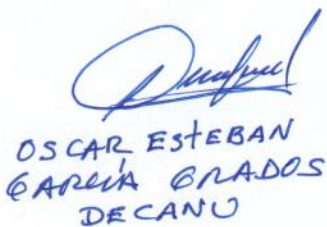 OSCAR EStEBAN
GARCÍA GRADOS
DECANO